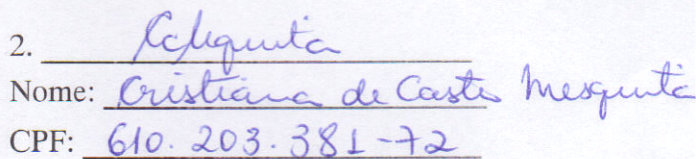 2.
Nome: Cristiana de Castro Mesquita
CPF: 610.203.381-72